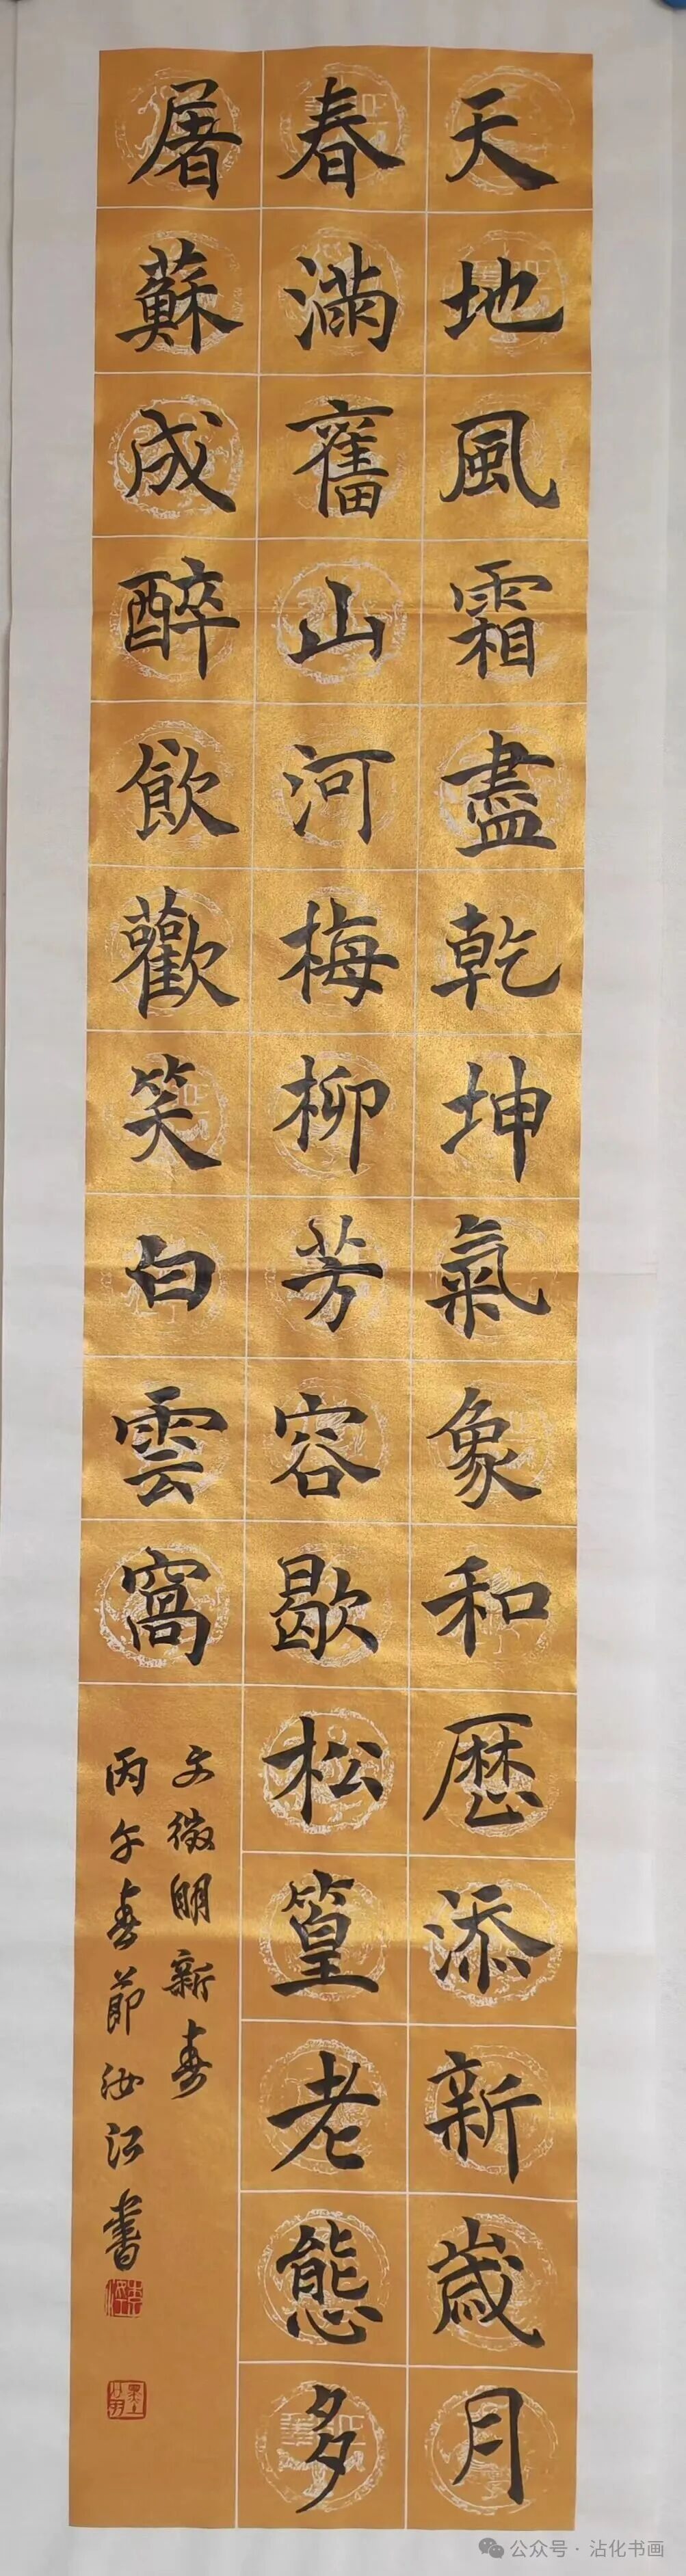 天地風霜盡乾坤氣象和歷添新歲月
春滿舊山河梅柳芳容歇松篁老態多
屠蘇成醉飲歡笑白雲窩
文徵明新春
丙午春節汝江書
公众号 · 沾化书画